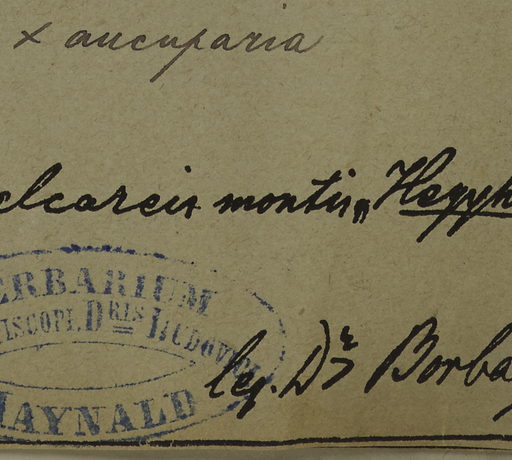 x aucuparia
alcareis montis „Hegyh
ERBARIUM
ISCOPI. DRIS LUDOVICI
HAYNALD
leg. Dr Borba